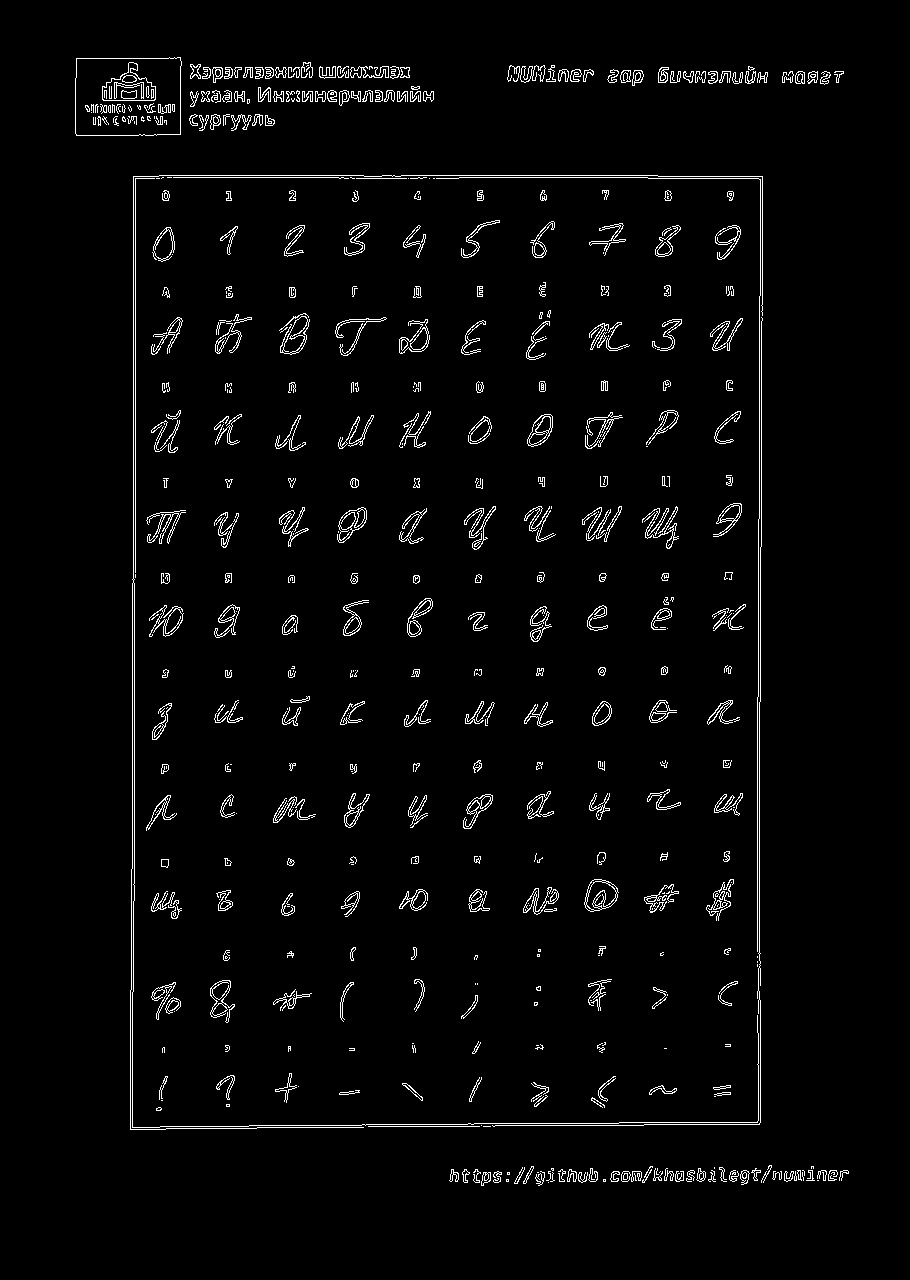 Хэрэглээний шинжлэх
ухаан, Инжинерчлэлийн
сургууль
NUMiner гар бичмэлийн маягт
0 1 2 3 4 5 6 7 8 9
0 1 2 3 4 5 6 7 8 9
А Б В Г Д Е Ё Ж З И
А Б В Г Д Е Ё Ж З И
Й К Л М Н О Ө П Р С
Й К Л М Н О Ө П Р С
Т У Ү Ф Х Ц Ч Ш Щ Э
Т У Ү Ф Х Ц Ч Ш Щ Э
Ю Я а б в г д е ё ж
Ю Я а б в г д е ё ж
з и й к л м н о ө п
з и й к л м н о ө п
р с т у ү ф х ц ч ш
р с т у ү ф х ц ч ш
щ ъ ь э ю я № @ # $
щ ъ ь э ю я № @ # $
& * ( ) ; : ₮
% & * ( ) ; : ₮ > <
! ? + - \ / ~ =
! ? + - \ / ≥ ≤ ~ =
https://github.com/khasbilegt/numiner